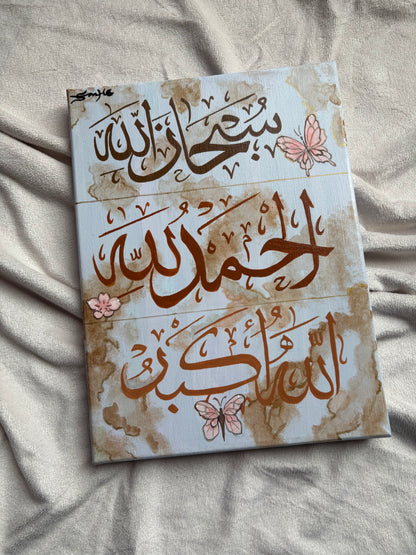 سُبْحَانَ اللَّه
الْحَمْدُ لِلَّه
اللَّهُ أَكْبَرُ